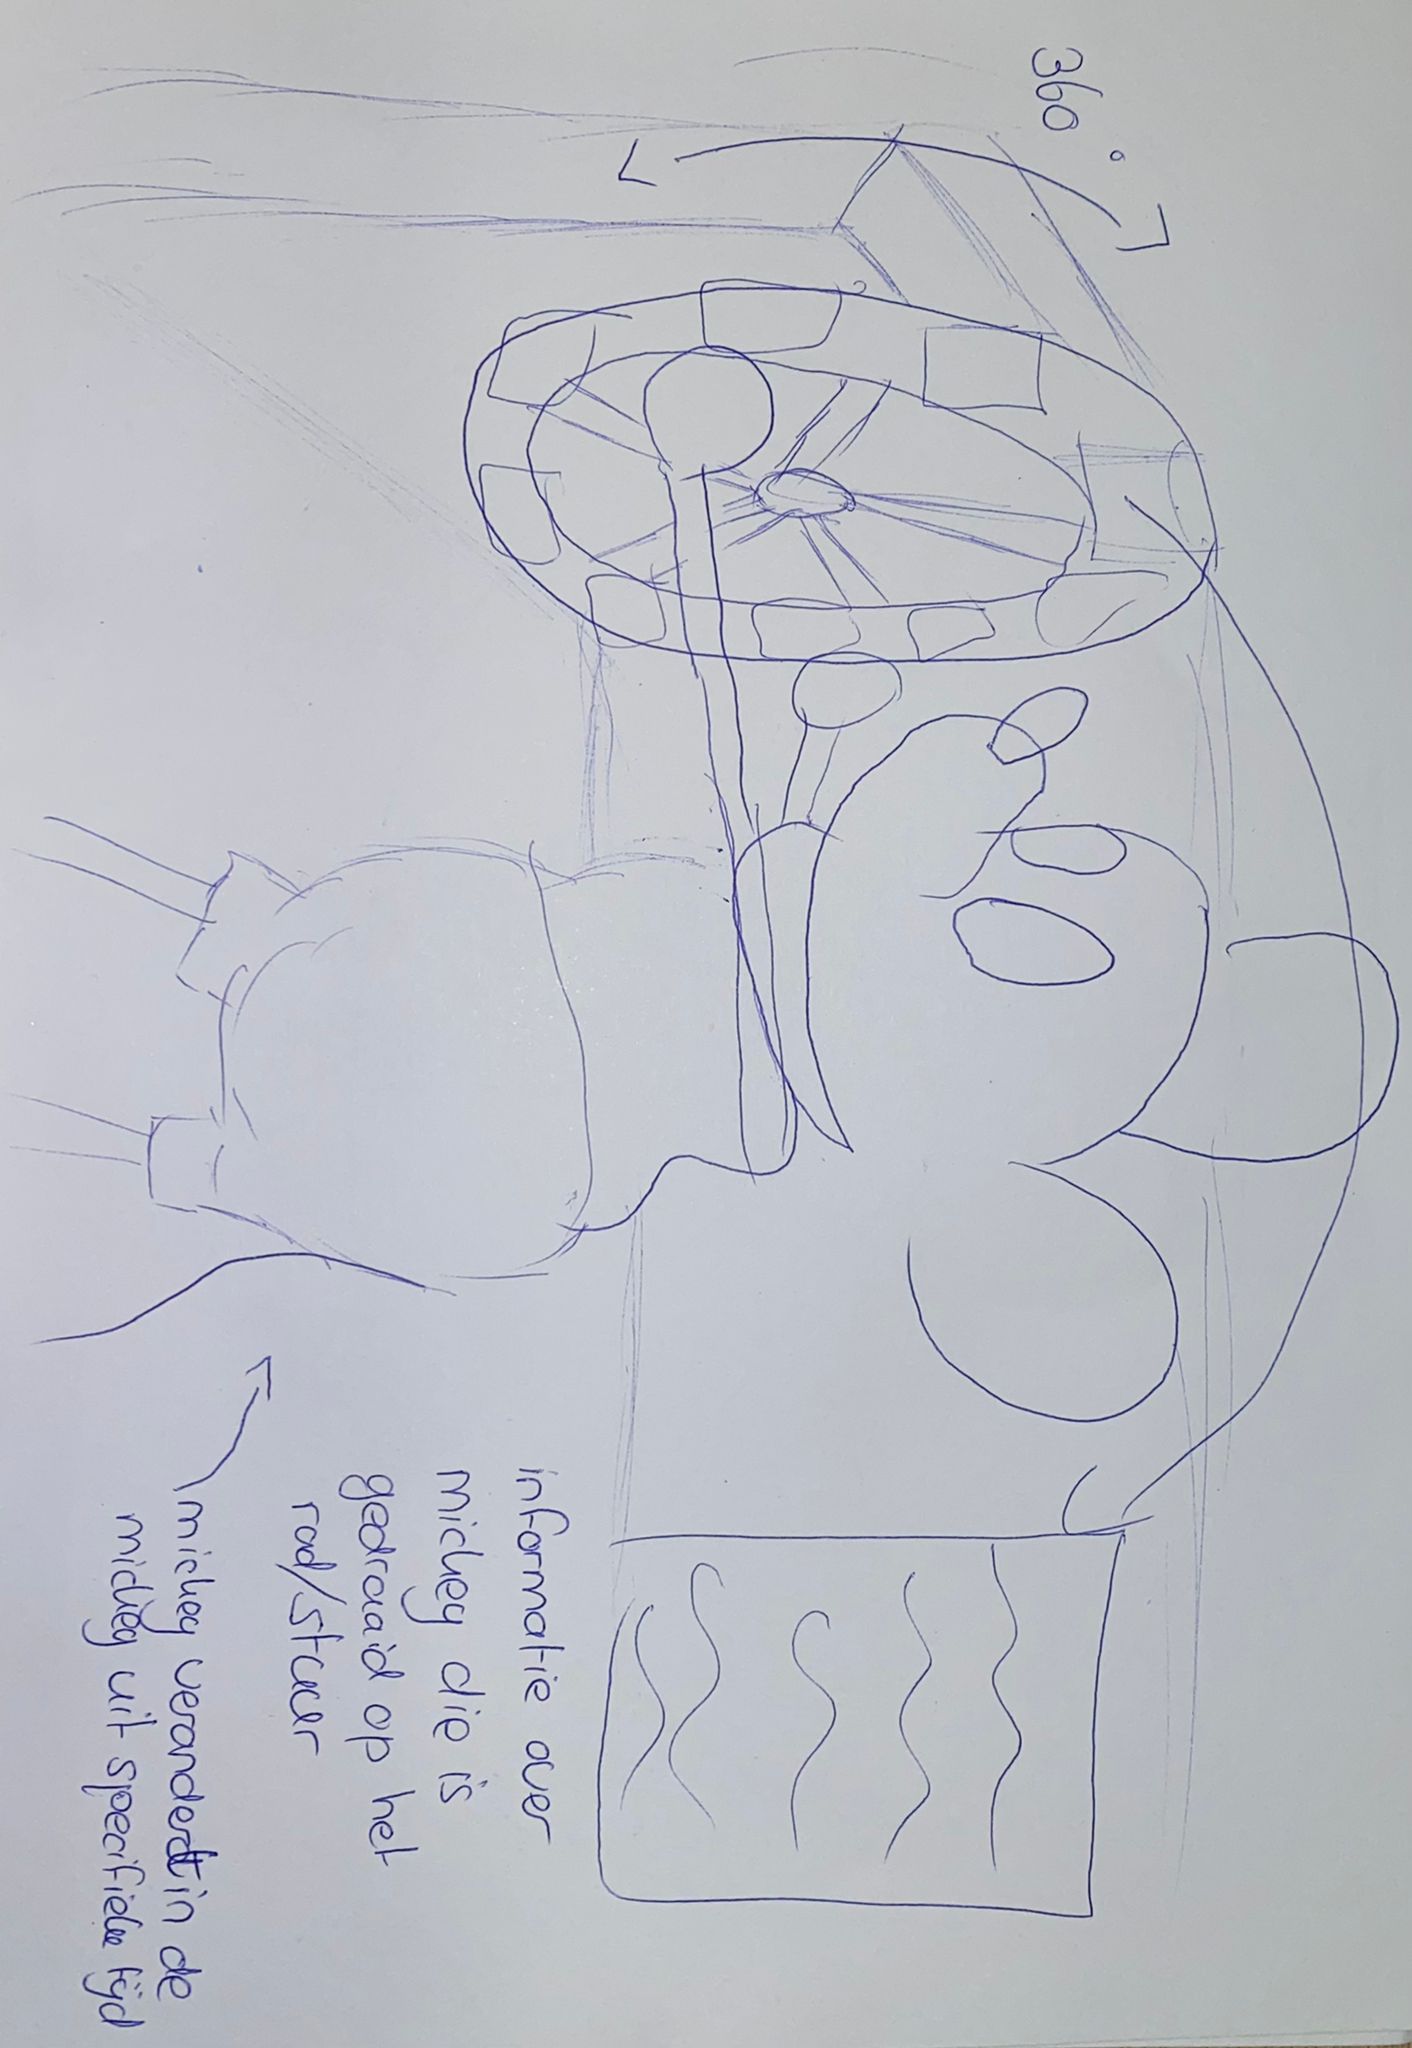 360°
informatie over
mickey die is
gedraaid op het
rad/stuur
mickey verandert in de
mickey uit specifieke tijd